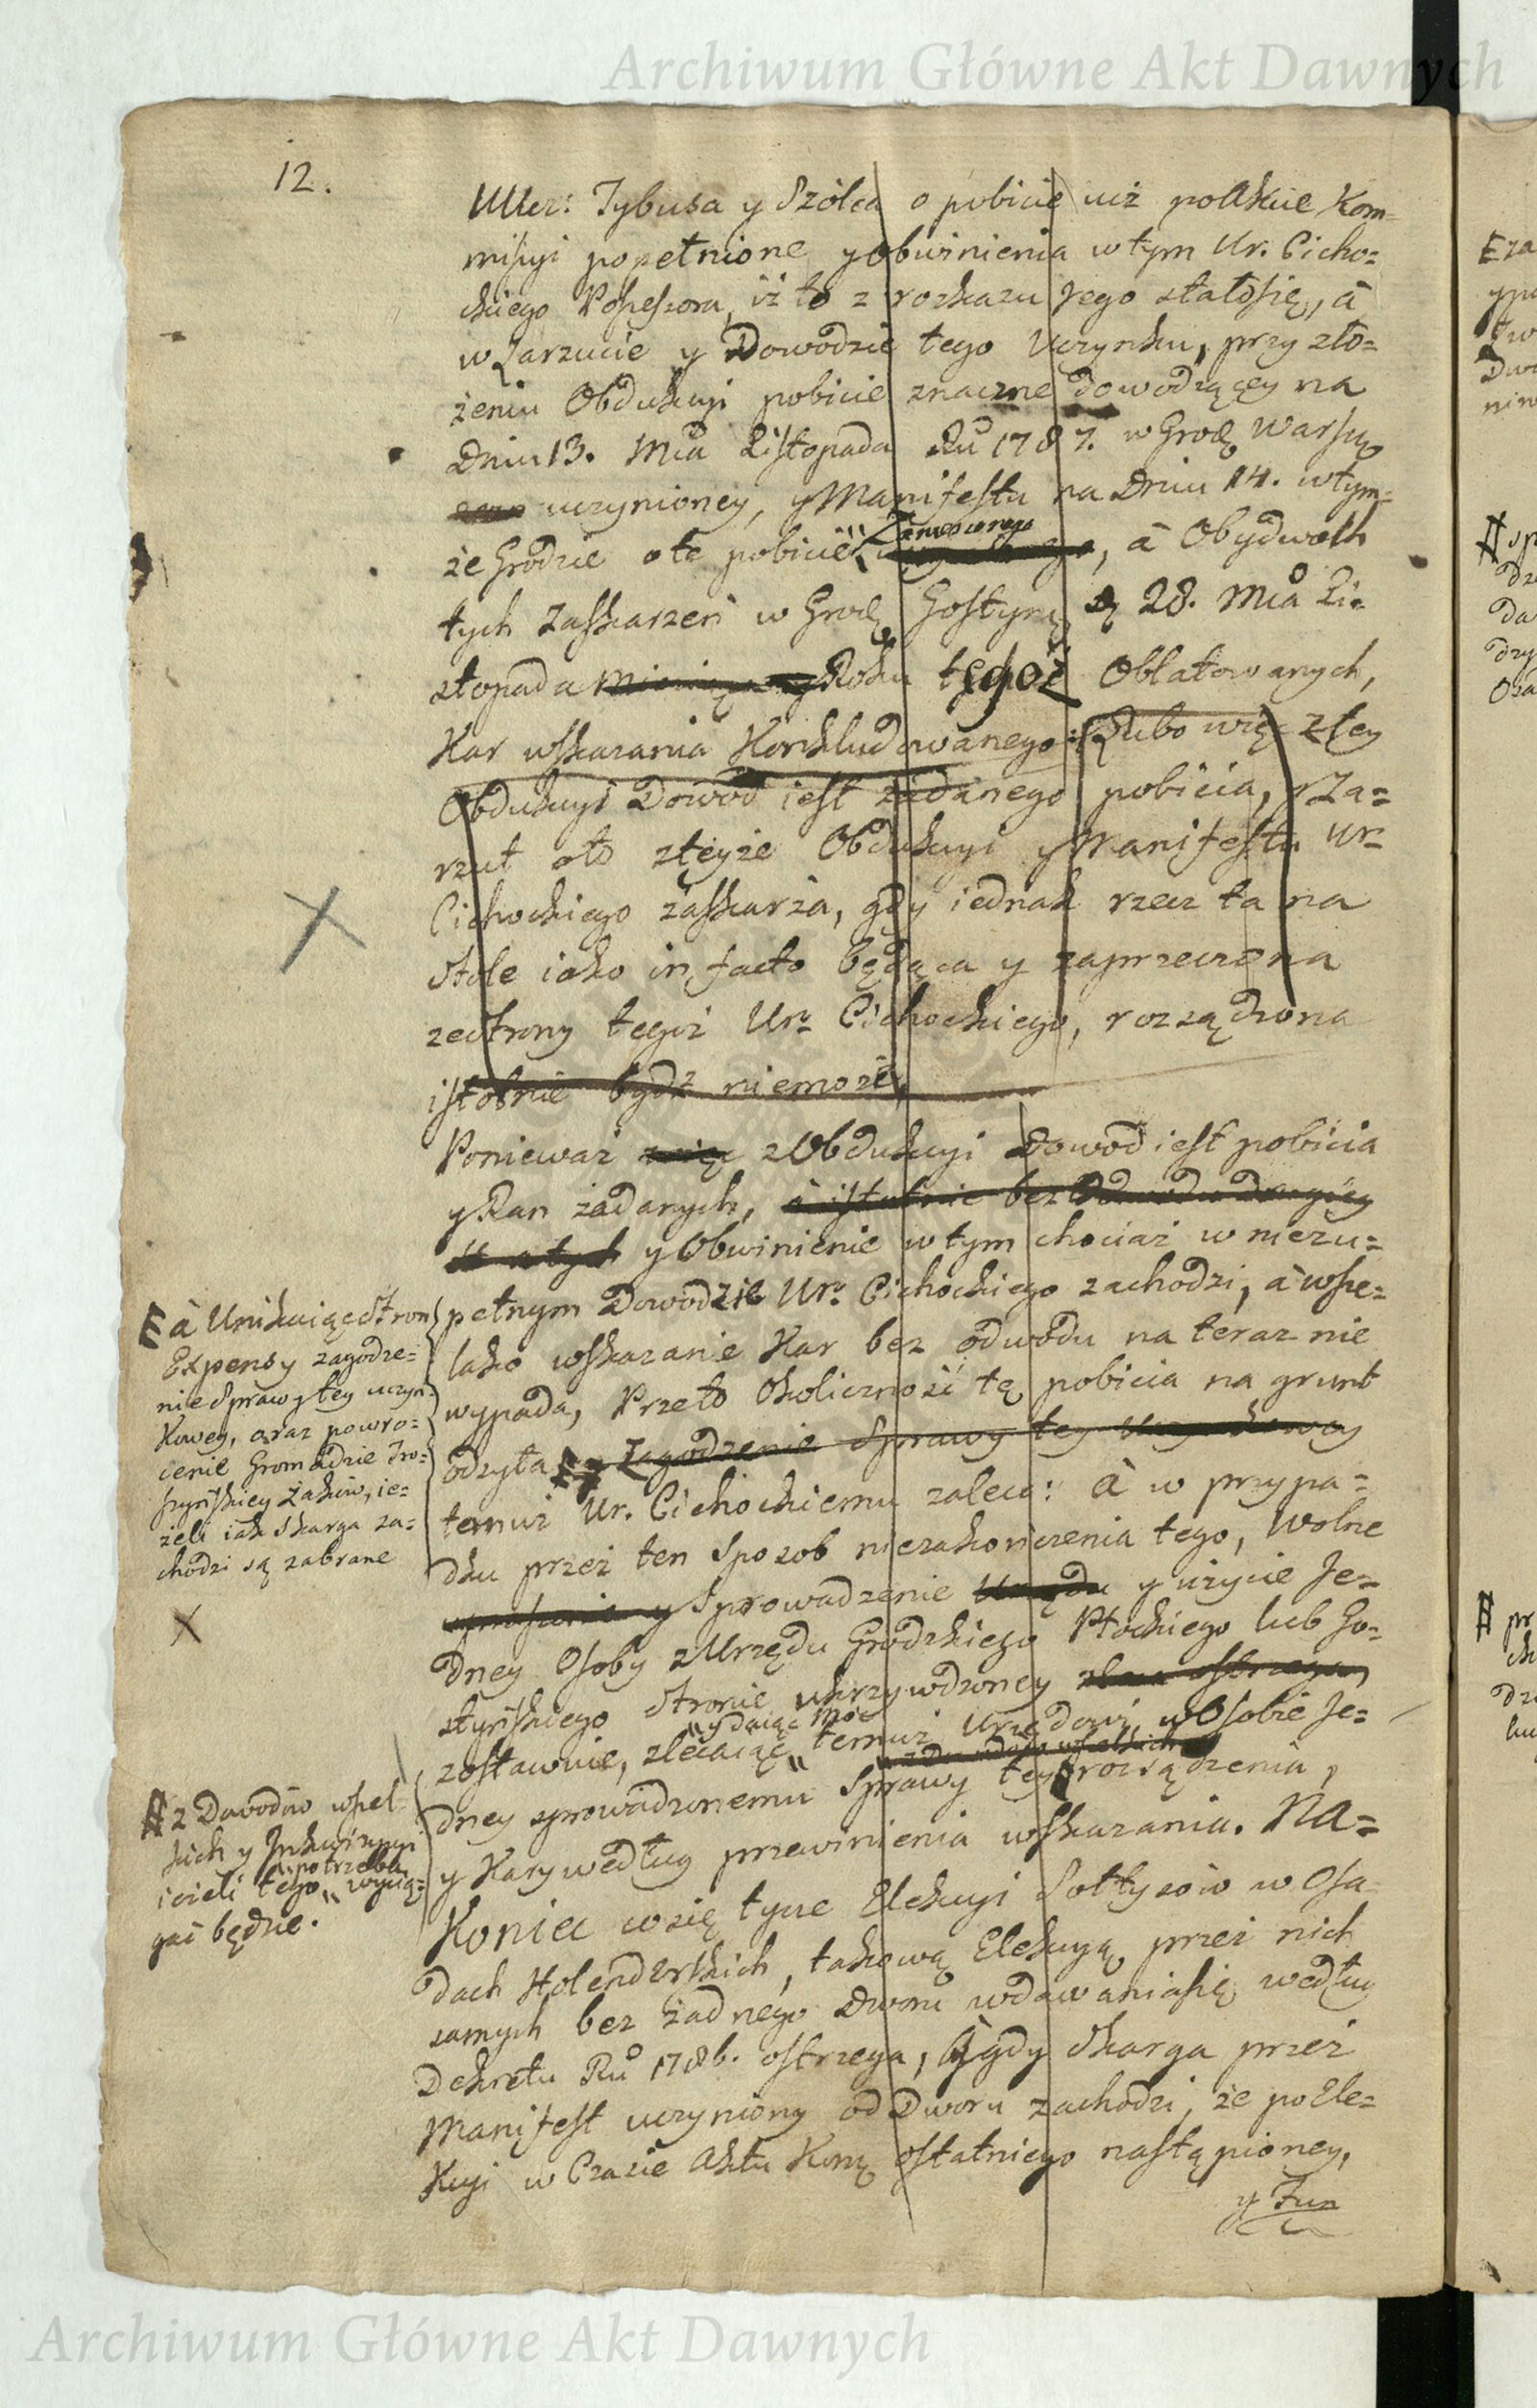 Archiwum Główne Akt Dawnych
12.
Uller: Tybusa y Szolca o pobicie iuż po Akcie Kom=
missyi popełnione y obwinienia w tym Ur. Cicho=
ckiego Possessora, iż to z rozkazu Jego stało się, à
w Zarzucie y Dowodzie tego Uczynku, przy zło=
żeniu Obdukcyi pobicie znaczne dowodzącey na
Dniu 13. Mca Listopada Ru 1787. w Grodz Warszę
uczynioney, y Manifestu na Dniu 14. w tym=
że Grodzie o te pobicie Zaniesionego, à Obydwóch
tych Zaskarzeń w Grodz Gostyn, 28. Mca Li=
stopada Roku tegoż Oblatowanych,
Kar wskazania Konkludowanego: Lubo więc z tey
Obdukcyi Dowód iest zadanego pobicia, y Za=
rzut oto z teyże Obdukcyi y Manifestu Ur
Cichockiego zaskarża, gdy iednak rzecz ta na
Stole iako in facto będąca y zaprzeczona
ze strony tegoż Ur Cichockiego, rozsądzona
istotnie bydź niemoże,
Ponieważ z Obdukcyi Dowód iest pobicia
y Ran zadanych, à istotnie bez Odwodu drugiey
y Obwinienie w tym chociaż w niezu=
pełnym Dowodzie Ur. Cichockiego zachodzi, à wsze=
lako wskazanie Kar bez odwodu na teraz nie
wypada, Przeto Okoliczność tę pobicia na grunt
odzyła y Zagodzenie Sprawy tey Uczynkowey
temuż Ur. Cichockiemu zaleca: à w przypa=
dku przez ten Sposob niezakończenia tego, Wolne
y Sprowadzenie Urzędu y użycie Je=
dney Osoby z Urzędu Grodzkiego Płockiego lub Go=
styńskiego Stronie ukrzywdzoney
zostawuie, zlecaiąc y daiąc Moc temuż Urzędowi, w Osobie Je=
dney sprowadzonemu Sprawy tey rozsądzenia,
y Kary według przewinienia wskazania. Na=
Koniec co się tycze Elekcyi Sołtysów w Osa=
dach Holenderskich, takową Elekcyą przez nich
samych bez żadnego Dworu wdawania się według
Dekretu Ru 1786. ostrzega, à gdy Skarga przez
Manifest uczyniony od Dworu zachodzi, że po Ele=
Kcyi w Czasie Aktu Komę ostatniego nastąpioney,
y Fun
à Unikaiąc Stron
Expensy zagodze=
nie Sprawy tey uczyn=
Kowey, oraz powro=
cenie Gromadzie Tro=
szyńskiey Żaków, ie=
żeli iak Skarga za=
chodzi są zabrane
z Dowodów wszel=
kich y Inkwizycyi
ieżeli tego potrzeba wycią=
gać będzie.
Archiwum Główne Akt Dawnych